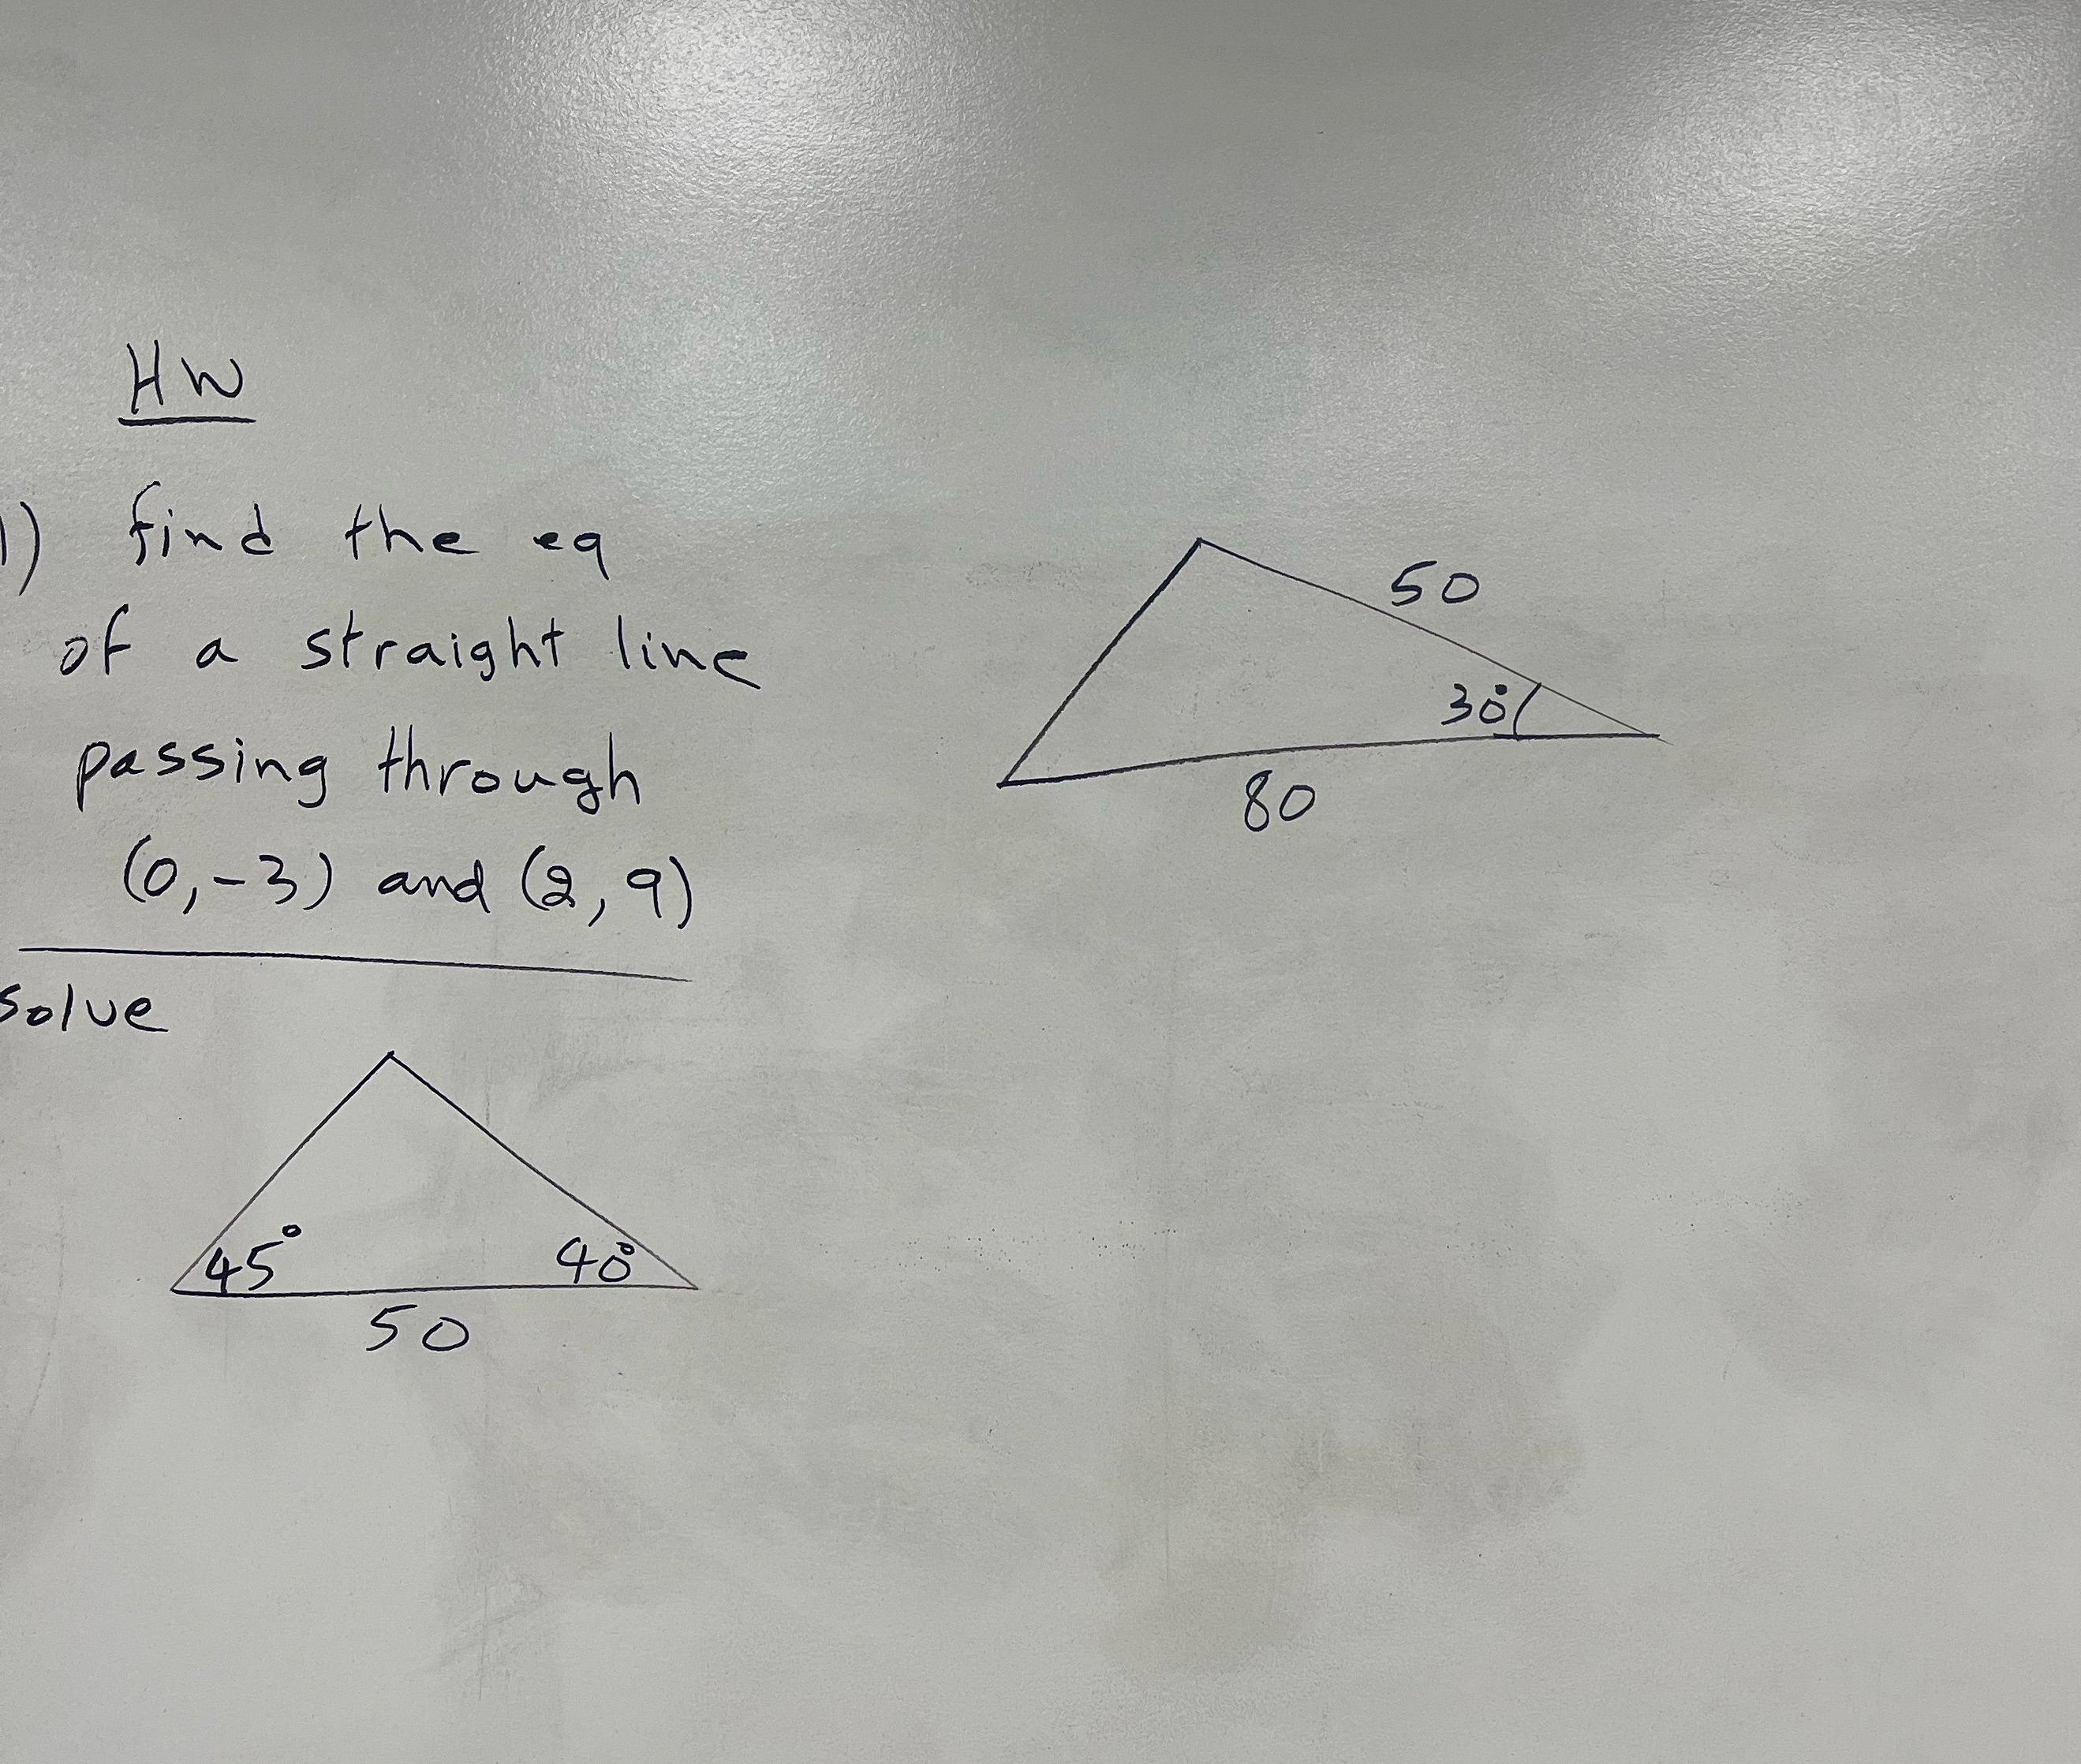 HW
1) find the eq
of a straight line
passing through
(0,-3) and (2,9)
solve
45°
40°
50
50
30°
80